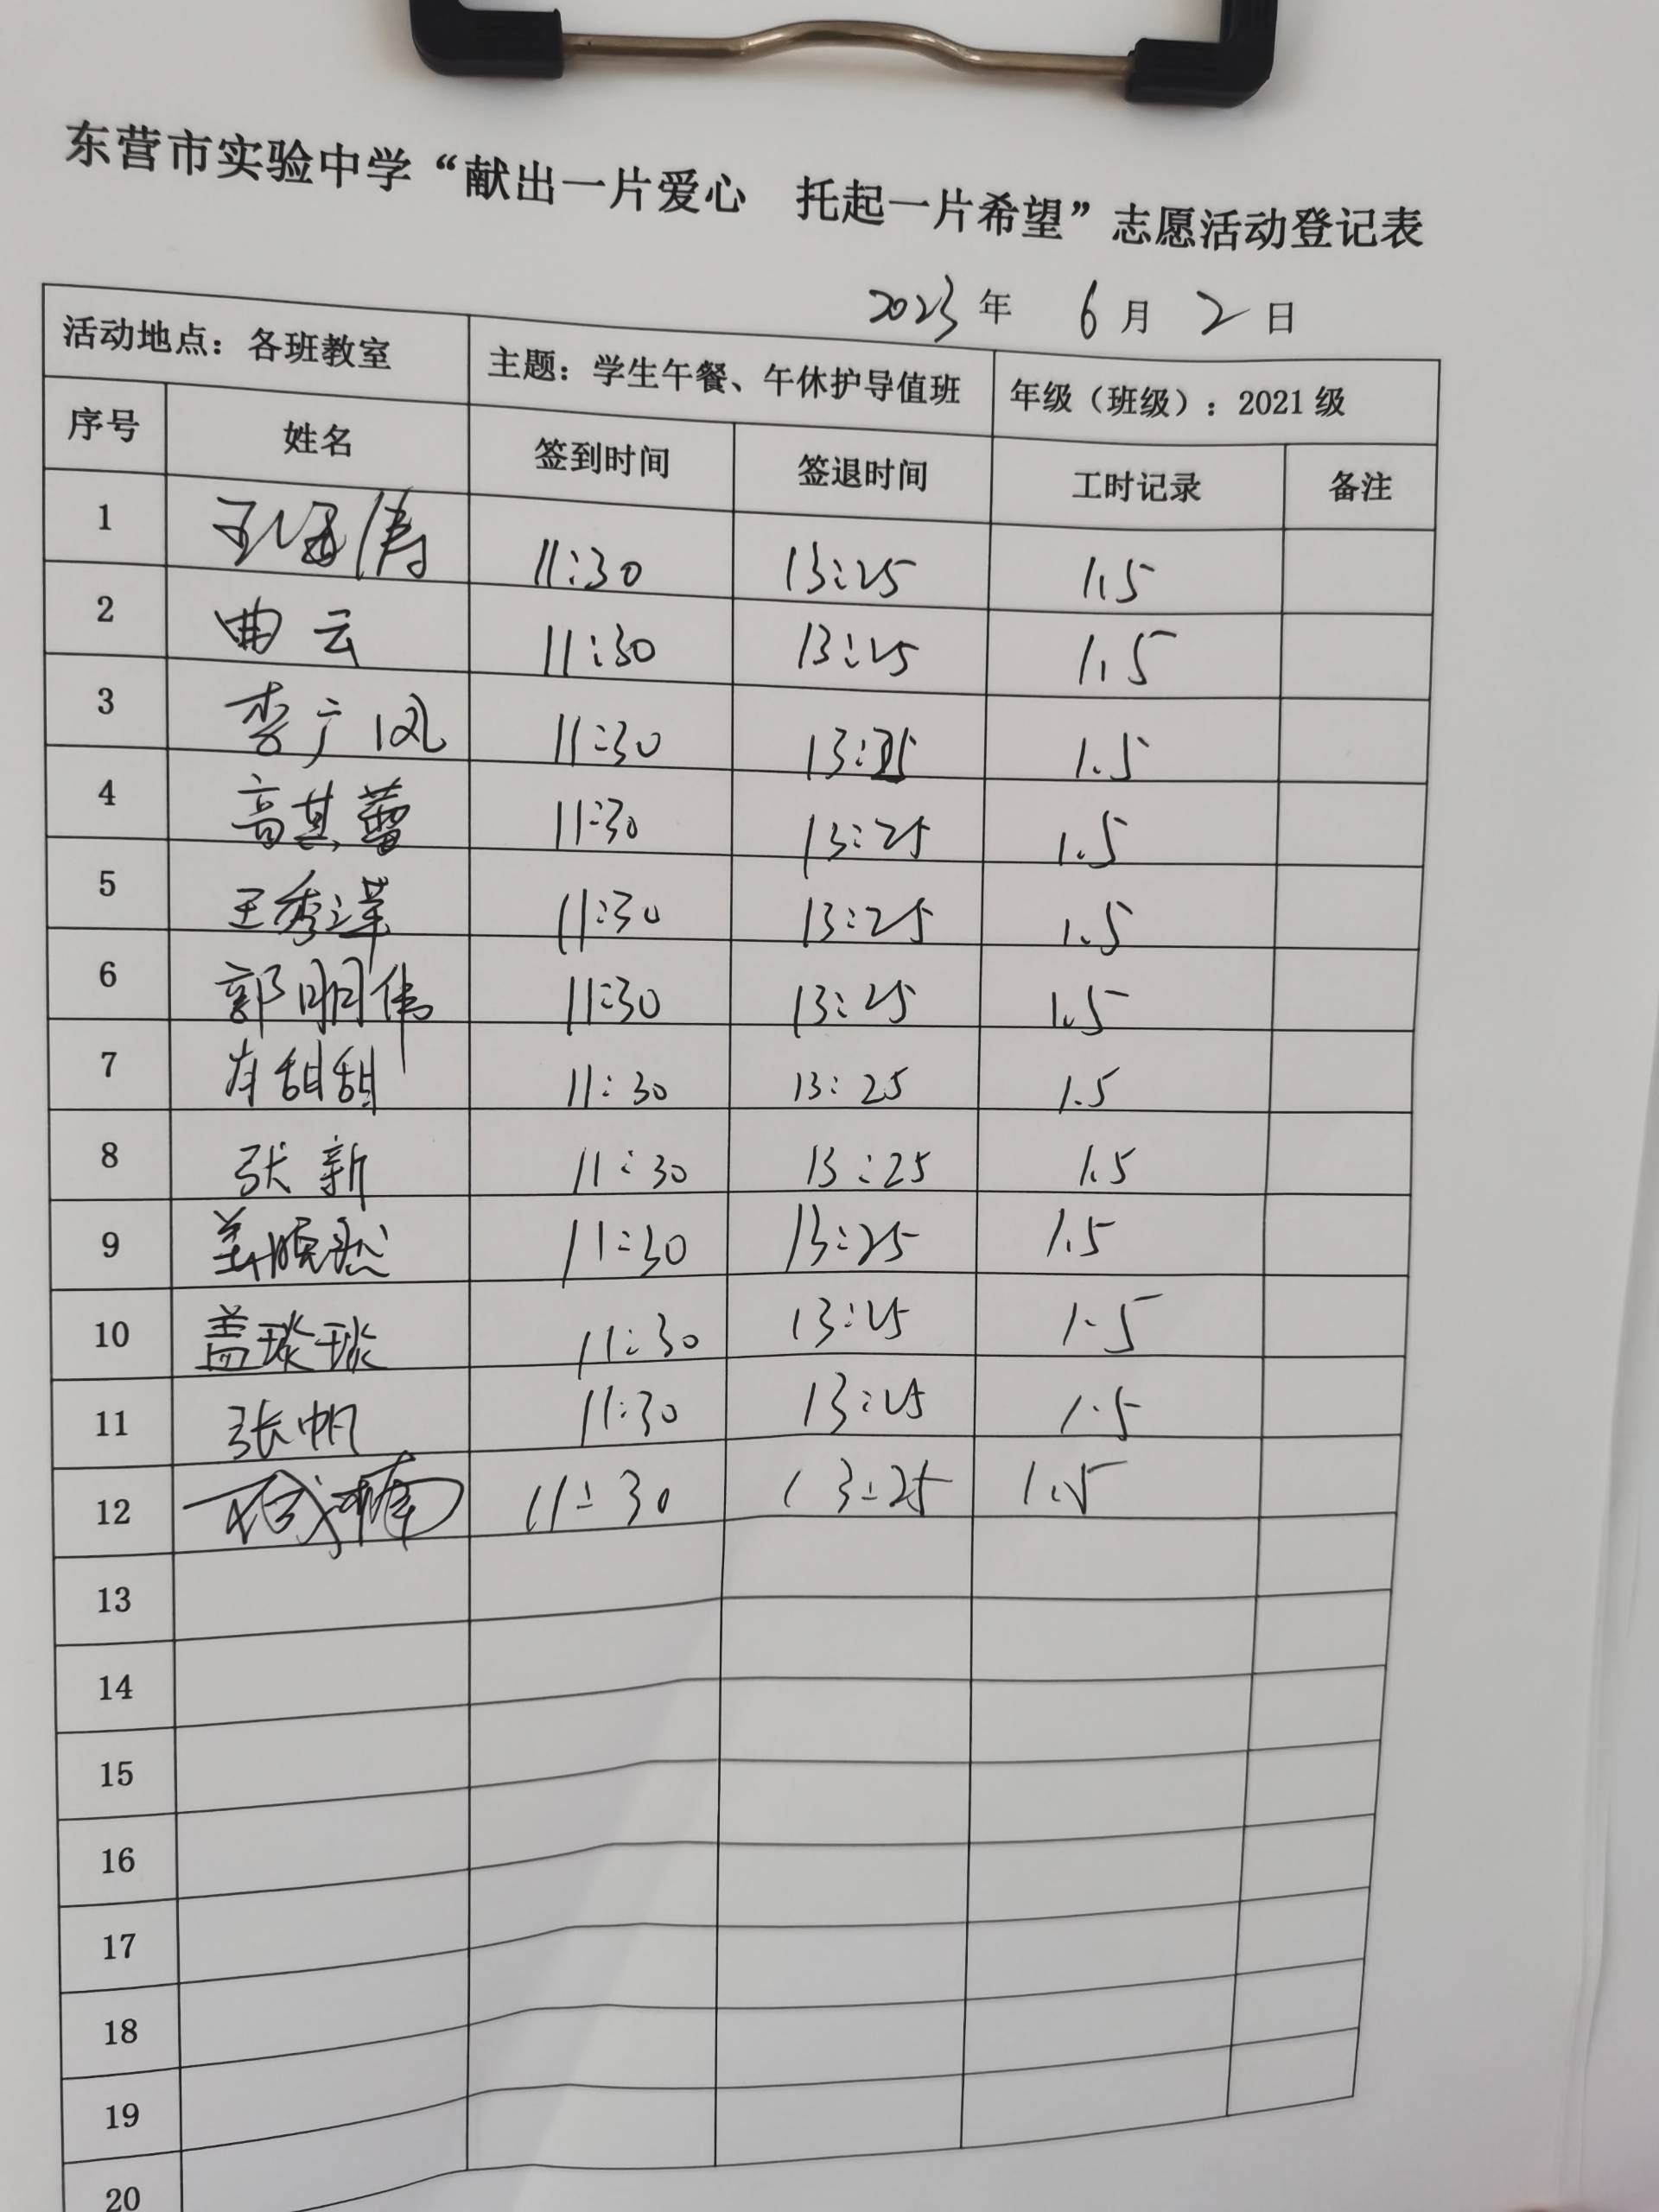 东营市实验中学“献出一片爱心 托起一片希望”志愿活动登记表
2023年 6月 2日
活动地点：各班教室 主题：学生午餐、午休护导值班 年级（班级）：2021级
序号 姓名 签到时间 签退时间 工时记录 备注
1 11:30 13:25 1.5
2 曲云 11:30 13:25 1.5
3 李广凤 11:30 13:25 1.5
4 高其蕾 11:30 13:25 1.5
5 王秀 11:30 13:25 1.5
6 郭明伟 11:30 13:25 1.5
7 甜甜 11:30 13:25 1.5
8 张新 11:30 13:25 1.5
9 11:30 13:25 1.5
10 盖琰琰 11:30 13:25 1.5
11 张帆 11:30 13:25 1.5
12 11:30 13:25 1.5
13
14
15
16
17
18
19
20